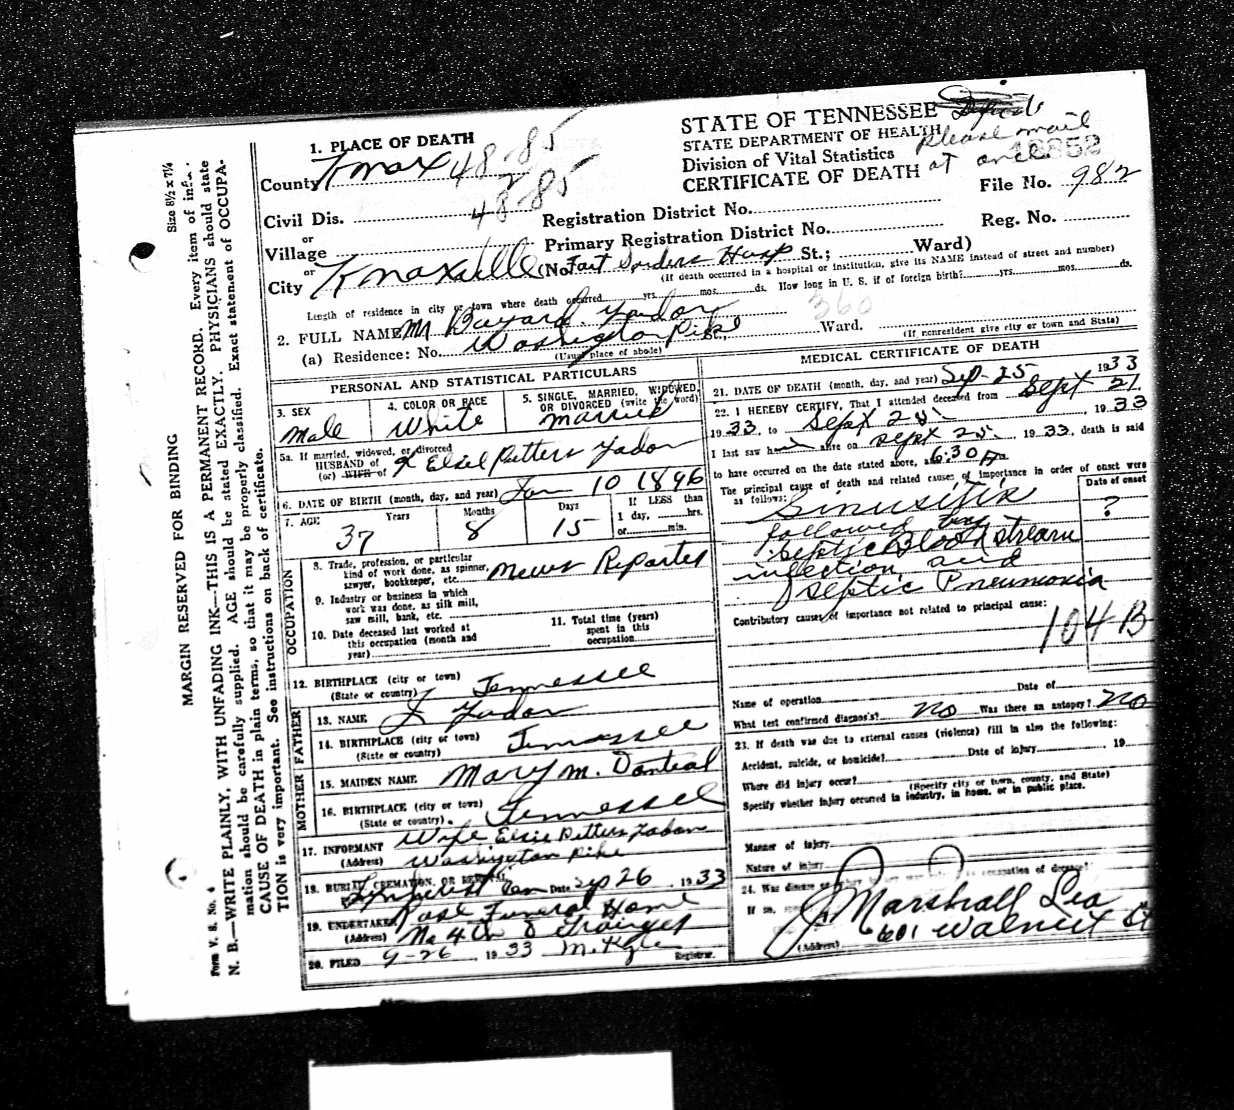 Size 8½ x 7¼
MARGIN RESERVED FOR BINDING
Form V. S. No. 4
N. B.—WRITE PLAINLY, WITH UNFADING INK—THIS IS A PERMANENT RECORD. Every item of
mation should be carefully supplied. AGE should be stated EXACTLY. PHYSICIANS should state
CAUSE OF DEATH in plain terms, so that it may be properly classified. Exact statement of OCCUPA-
TION is very important. See instructions on back of certificate.
1. PLACE OF DEATH
County Knox 48-85
2
Civil Dis. 48-85
Village
or
City Knoxville
STATE OF TENNESSEE
STATE DEPARTMENT OF HEALTH
Division of Vital Statistics
CERTIFICATE OF DEATH
Please mail
at once
18852
File No. 982
Registration District No.
Reg. No.
Primary Registration District No.
(No. Fort Sanders Hosp St.; Ward)
(If death occurred in a hospital or institution, give its NAME instead of street and number)
Length of residence in city or town where death occurred yrs. mos. ds. How long in U. S. if of foreign birth? yrs. mos. ds.
360
2. FULL NAME Mr Bayard Yadon
(a) Residence: No. Washington Pike St., Ward.
(Usual place of abode) (If nonresident give city or town and State)
PERSONAL AND STATISTICAL PARTICULARS
3. SEX
Male
4. COLOR OR RACE
White
5. SINGLE, MARRIED, WIDOWED,
OR DIVORCED (write the word)
married
5a. If married, widowed, or divorced
HUSBAND of
(or) WIFE of Elsie Petters Yadon
6. DATE OF BIRTH (month, day, and year) Jan 10 1896
7. AGE Years Months Days If LESS than
1 day, hrs.
or min.
37 8 15
OCCUPATION
8. Trade, profession, or particular
kind of work done, as spinner,
sawyer, bookkeeper, etc. News Reporter
9. Industry or business in which
work was done, as silk mill,
saw mill, bank, etc.
10. Date deceased last worked at
this occupation (month and
year)
11. Total time (years)
spent in this
occupation
12. BIRTHPLACE (city or town)
(State or country) Tennessee
FATHER
13. NAME J Yadon
14. BIRTHPLACE (city or town)
(State or country) Tennessee
MOTHER
15. MAIDEN NAME Mary M.
16. BIRTHPLACE (city or town)
(State or country). Tennessee
17. INFORMANT Wife Elsie Petters Yadon
(Address) Washington Pike
18. BURIAL, CREMATION, OR REMOVAL
Lynhurst Cem Date Sep 26, 1933
19. UNDERTAKER Rose Funeral Home
(Address) No 4th & Grainger
20. FILED 9-26, 1933 Registrar.
MEDICAL CERTIFICATE OF DEATH
21. DATE OF DEATH (month, day, and year) Sep-25 1933
22. I HEREBY CERTIFY, That I attended deceased from Sept 21
1933, to Sept 25, 1933
I last saw h alive on Sept 25, 1933, death is said
to have occurred on the date stated above, at 6:30 A m.
The principal cause of death and related causes of importance in order of onset were
as follows:
Date of onset
Sinusitis ?
followed by
Septic Blood stream
infection and
Septic Pneumonia
Contributory causes of importance not related to principal cause:
104B
Name of operation Date of
What test confirmed diagnosis? No Was there an autopsy? No
23. If death was due to external causes (violence) fill in also the following:
Accident, suicide, or homicide? Date of injury 19
Where did injury occur?
(Specify city or town, county, and State)
Specify whether injury occurred in industry, in home, or in public place.
Manner of injury
Nature of injury
24. Was disease or injury in any way related to occupation of deceased?
If so, specify
J. Marshall Lea
(Address) 601 Walnut St